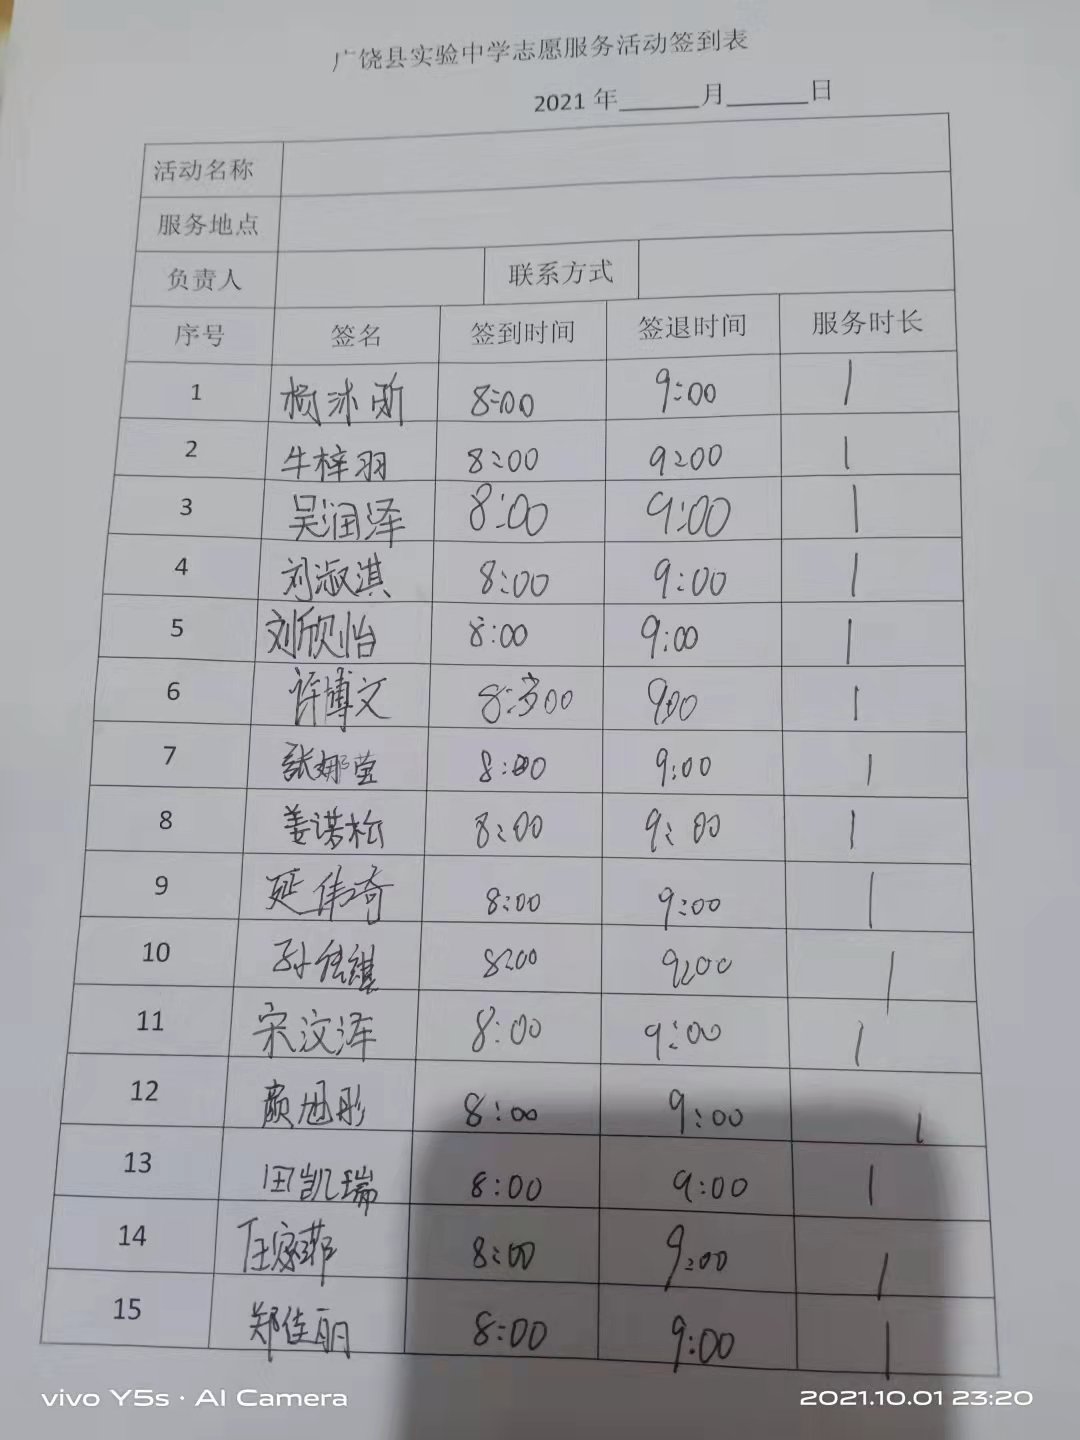 广饶县实验中学志愿服务活动签到表
2021 年______月______日
活动名称
服务地点
负责人 联系方式
序号 签名 签到时间 签退时间 服务时长
1 杨沐 8:00 9:00 1
2 牛梓羽 8:00 9:00 1
3 吴润泽 8:00 9:00 1
4 刘淑淇 8:00 9:00 1
5 刘欣怡 8:00 9:00 1
6 许博文 8:00 9:00 1
7 张娜莹 8:00 9:00 1
8 姜诺松 8:00 9:00 1
9 延伟琦 8:00 9:00 1
10 孙 8:00 9:00 1
11 宋汶泽 8:00 9:00 1
12 颜旭彤 8:00 9:00 1
13 田凯瑞 8:00 9:00 1
14 任家 8:00 9:00 1
15 郑佳丽 8:00 9:00 1
vivo Y5s · AI Camera
2021.10.01 23:20